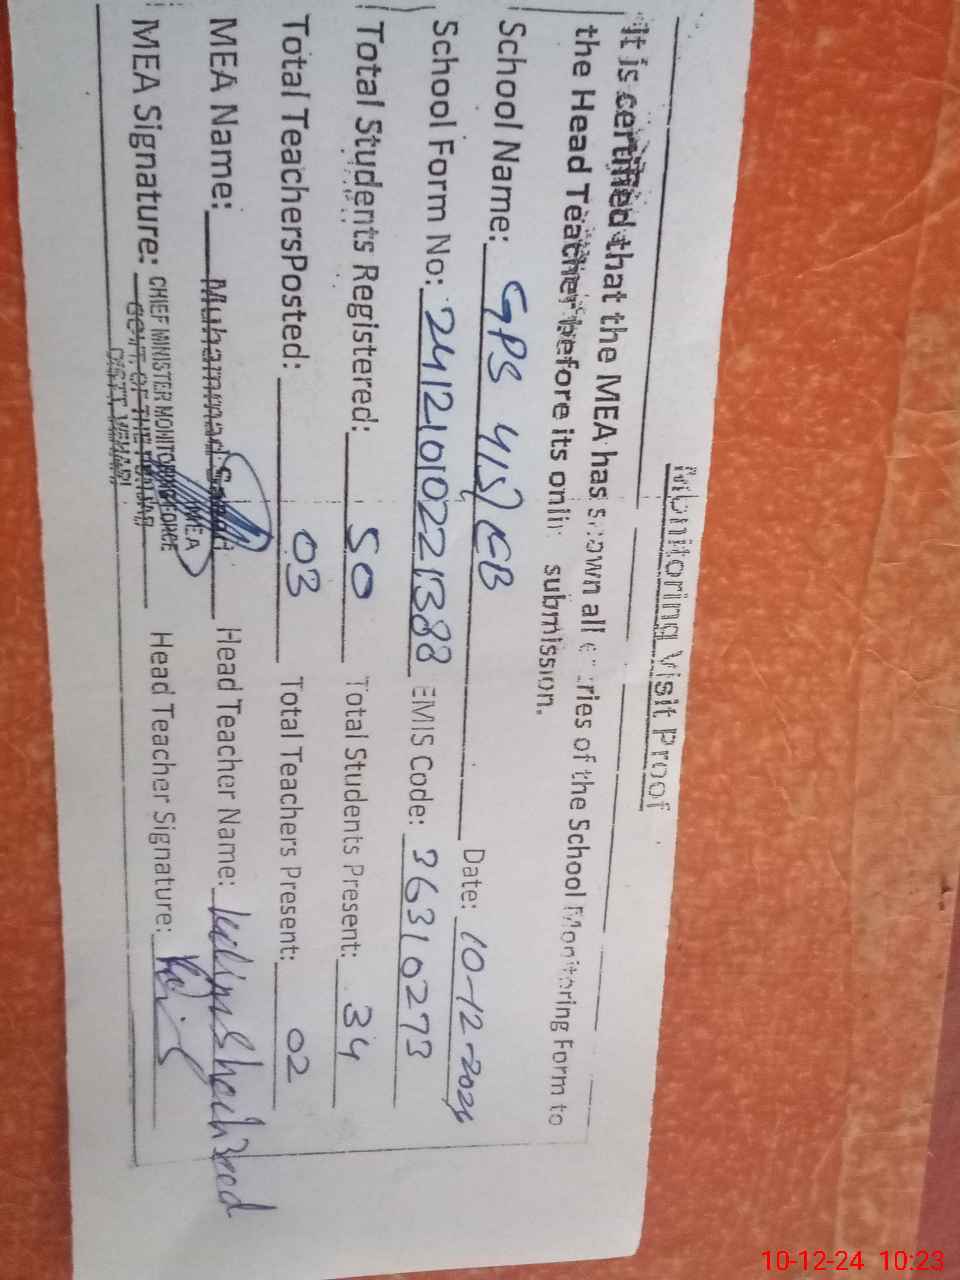 Monitoring Visit Proof
It is certified that the MEA has shown all entries of the School Monitoring Form to
the Head Teacher before its online submission.
School Name: GPS 415/EB Date: 10-12-2024
School Form No: 24121010221388 EMIS Code: 36310273
Total Students Registered: 50 Total Students Present: 34
Total TeachersPosted: 03 Total Teachers Present: 02
MEA Name: Muhammad Head Teacher Name:
MEA Signature: Head Teacher Signature:
MEA
CHIEF MINISTER MONITORING FORCE
GOVT. OF THE PUNJAB
DISTT. VEHARI
10-12-24 10:23